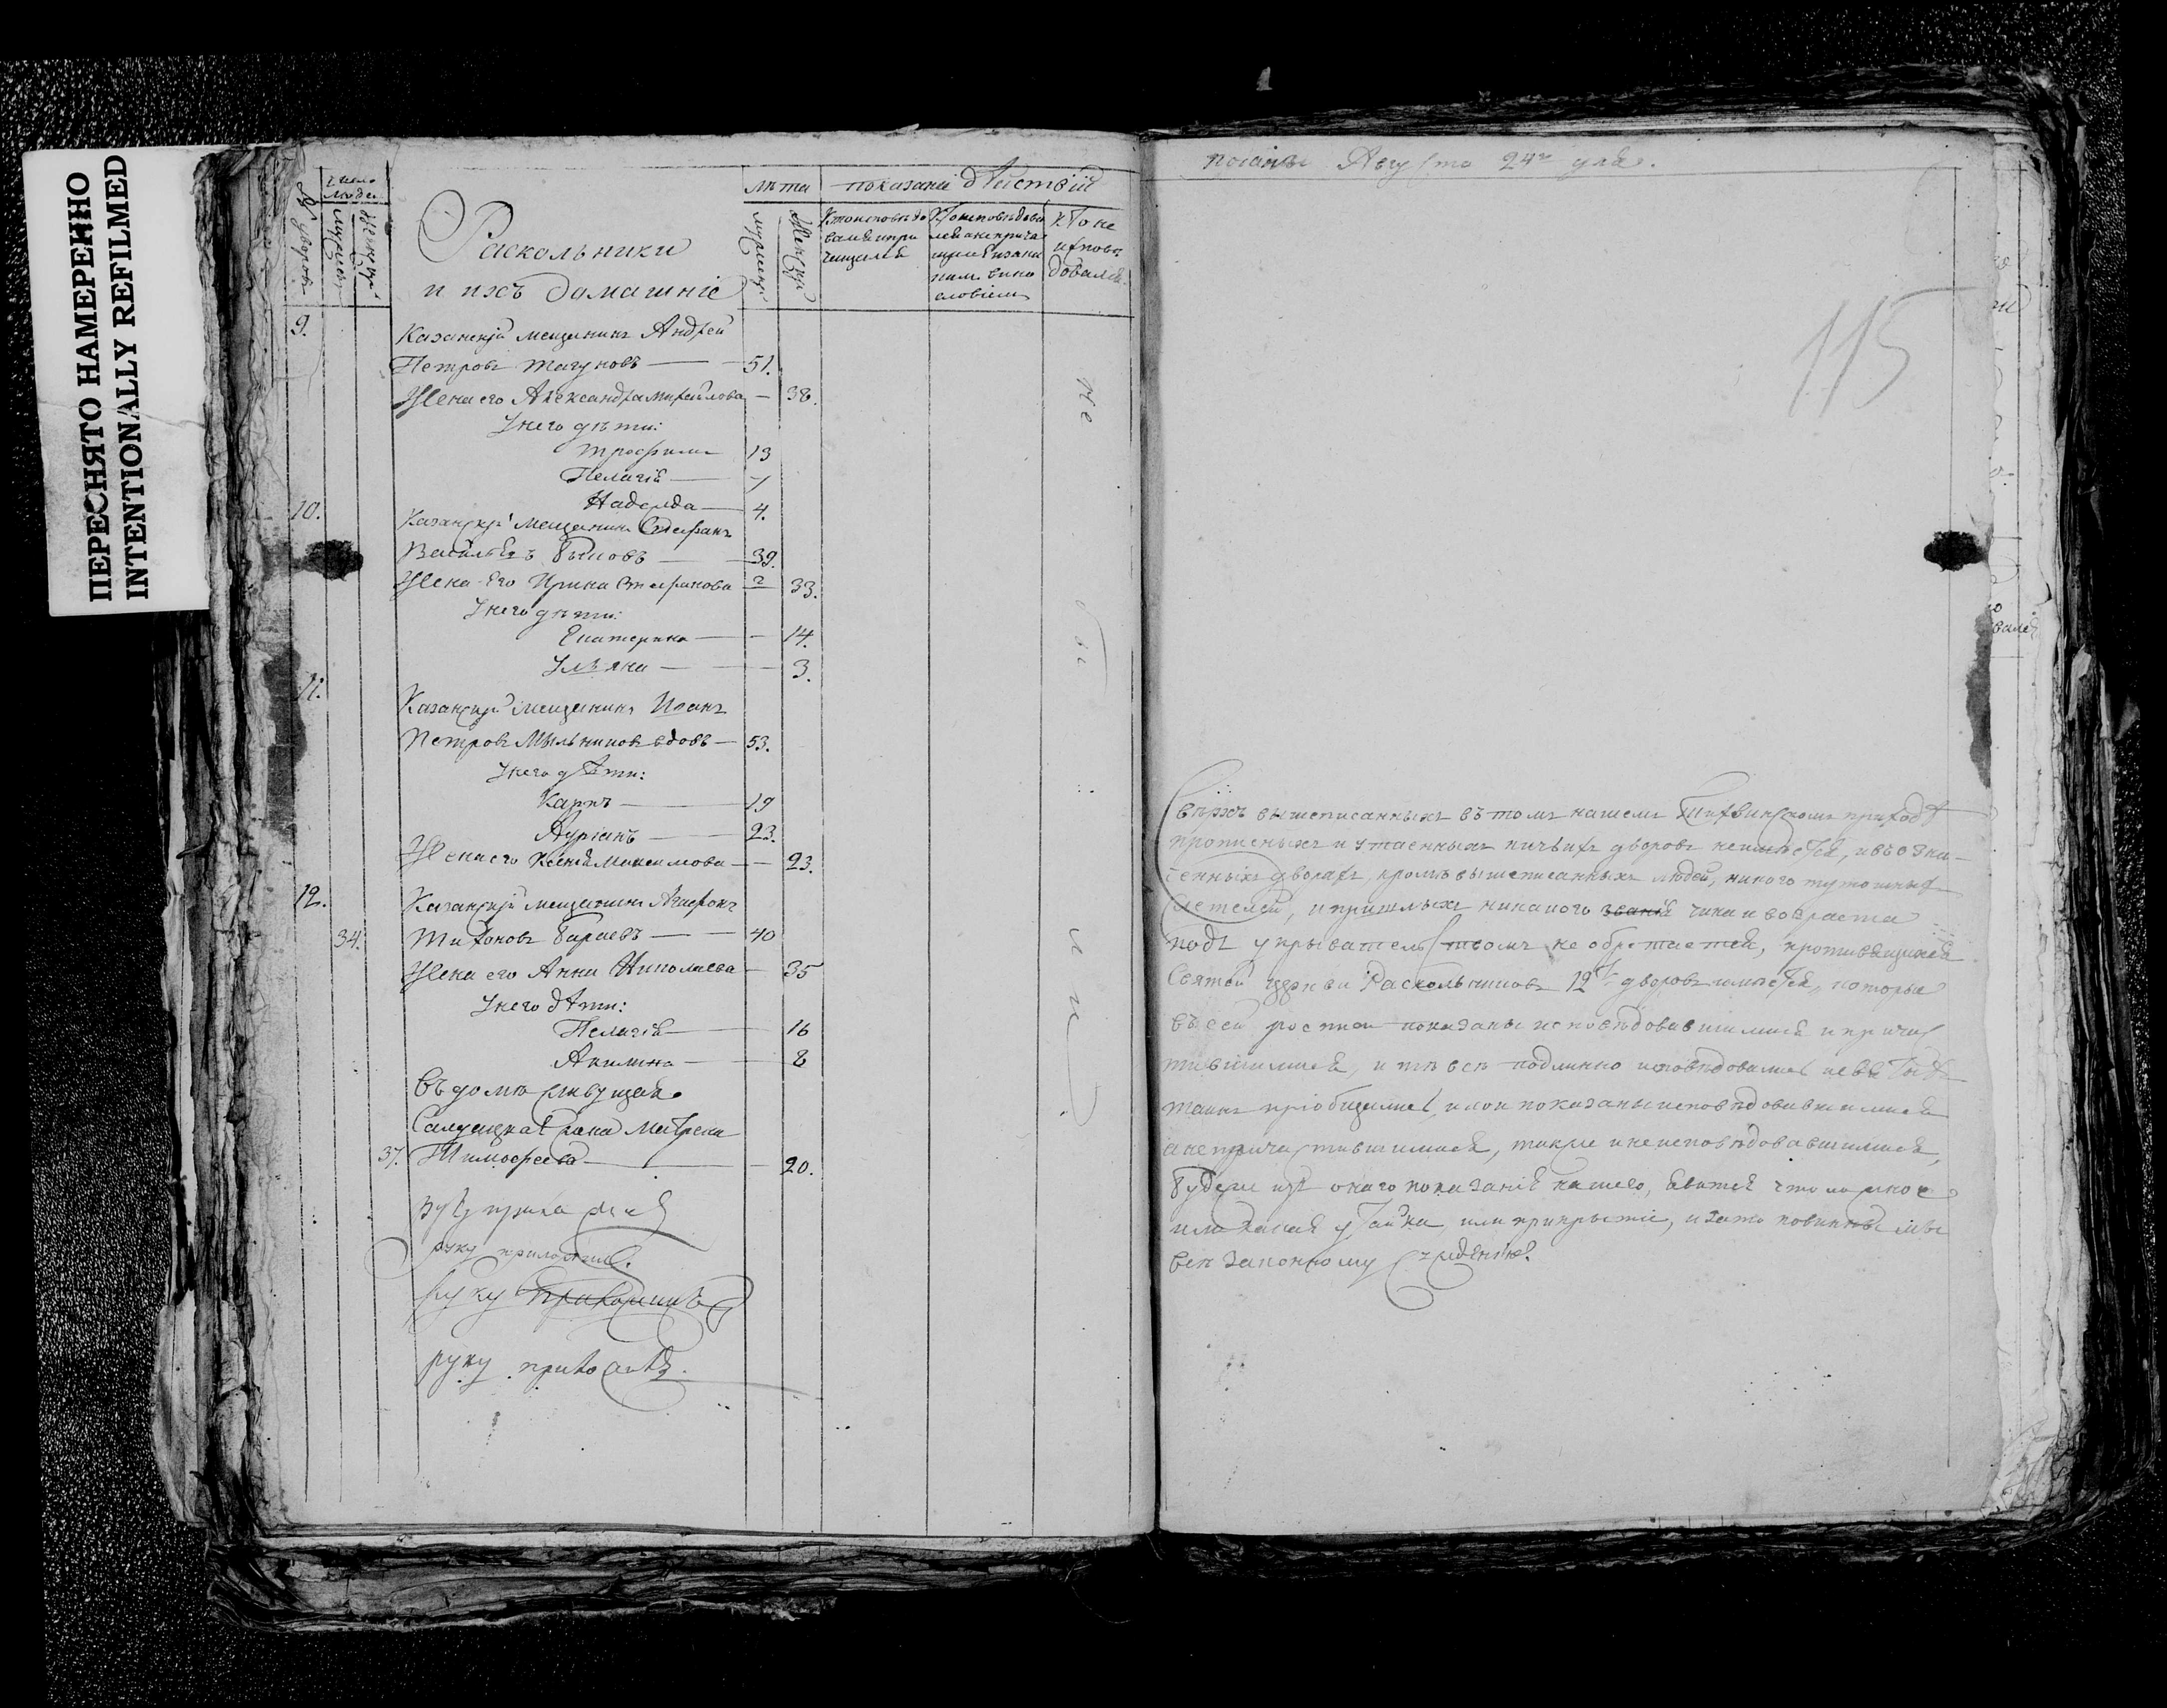 ПЕРЕСНЯТО НАМЕРЕННО
INTENTIONALLY REFILMED
№ дворовъ
число людей
мужеска
женска
Раскольники
и ихъ домашніе
лѣта
мужска
женска
показаніе дѣйствій
Кто исповѣдо
вался и при
чащался
Кто исповѣдова
лся а не прича
щался и за ка
кимъ вино
словіемъ
Кто не
исповѣ
довался
9.
Казанскій мещанинъ Андрей
Петровъ 51.
Жена его Александра Михайлова — 38.
У него дѣти:
Трофимъ 13
Пелагія — 7
Надежда — 4.
10. Казанскій мещанинъ Стефанъ
Васильевъ — 39.
Жена его Ирина Стефанова 33.
У него дѣти:
Екатерина — 14.
Ульяна — 3.
11.
Казанскій мещанинъ Иванъ
Петровъ Мыльниковъ вдовъ — 53.
У него дѣти:
Карпъ — 19
— 23.
Жена его Ксенія Максимова — 23.
12. Казанскій мещанинъ Агафонъ
34. Тихоновъ — 40
Жена его Анна Николаева — 35
У него дѣти:
Пелагія — 16
Акилина — 8
Въ домѣ живущая
Салдацкая жена Матрена
37. Тимофеева — 20.
руку приложилъ.
руку
руку
не
бы
ли
поданы Августа 24го дня.
115
Сверхъ вышеписанныхъ въ томъ нашемъ Тихвинскомъ приходѣ
прописныхъ и утаенныхъ ничьихъ дворовъ не имѣется, и въ озна-
ченныхъ дворахъ, кромѣ вышеписанныхъ людей, никого тутошныхъ
жителей, и пришлыхъ никакого званія чина и возраста
подъ укрывательствомъ не обретается, противящихся
Святой церкви Раскольниковъ 12ть дворовъ имѣется, которые
въ сей росписи показаны исповѣдовавшимися и причас
тившимися, и тѣ всѣ подлинно исповѣдовались и святыхъ
таинъ пріобщились, а кои показаны исповѣдовавшимися
а не причастившимися, также и не исповѣдовавшимися,
будеже изъ онаго показанія нашего, явится что ложное
или какая утайка, или прикрытіе, и зато повинны мы
всѣ законному сужденію.